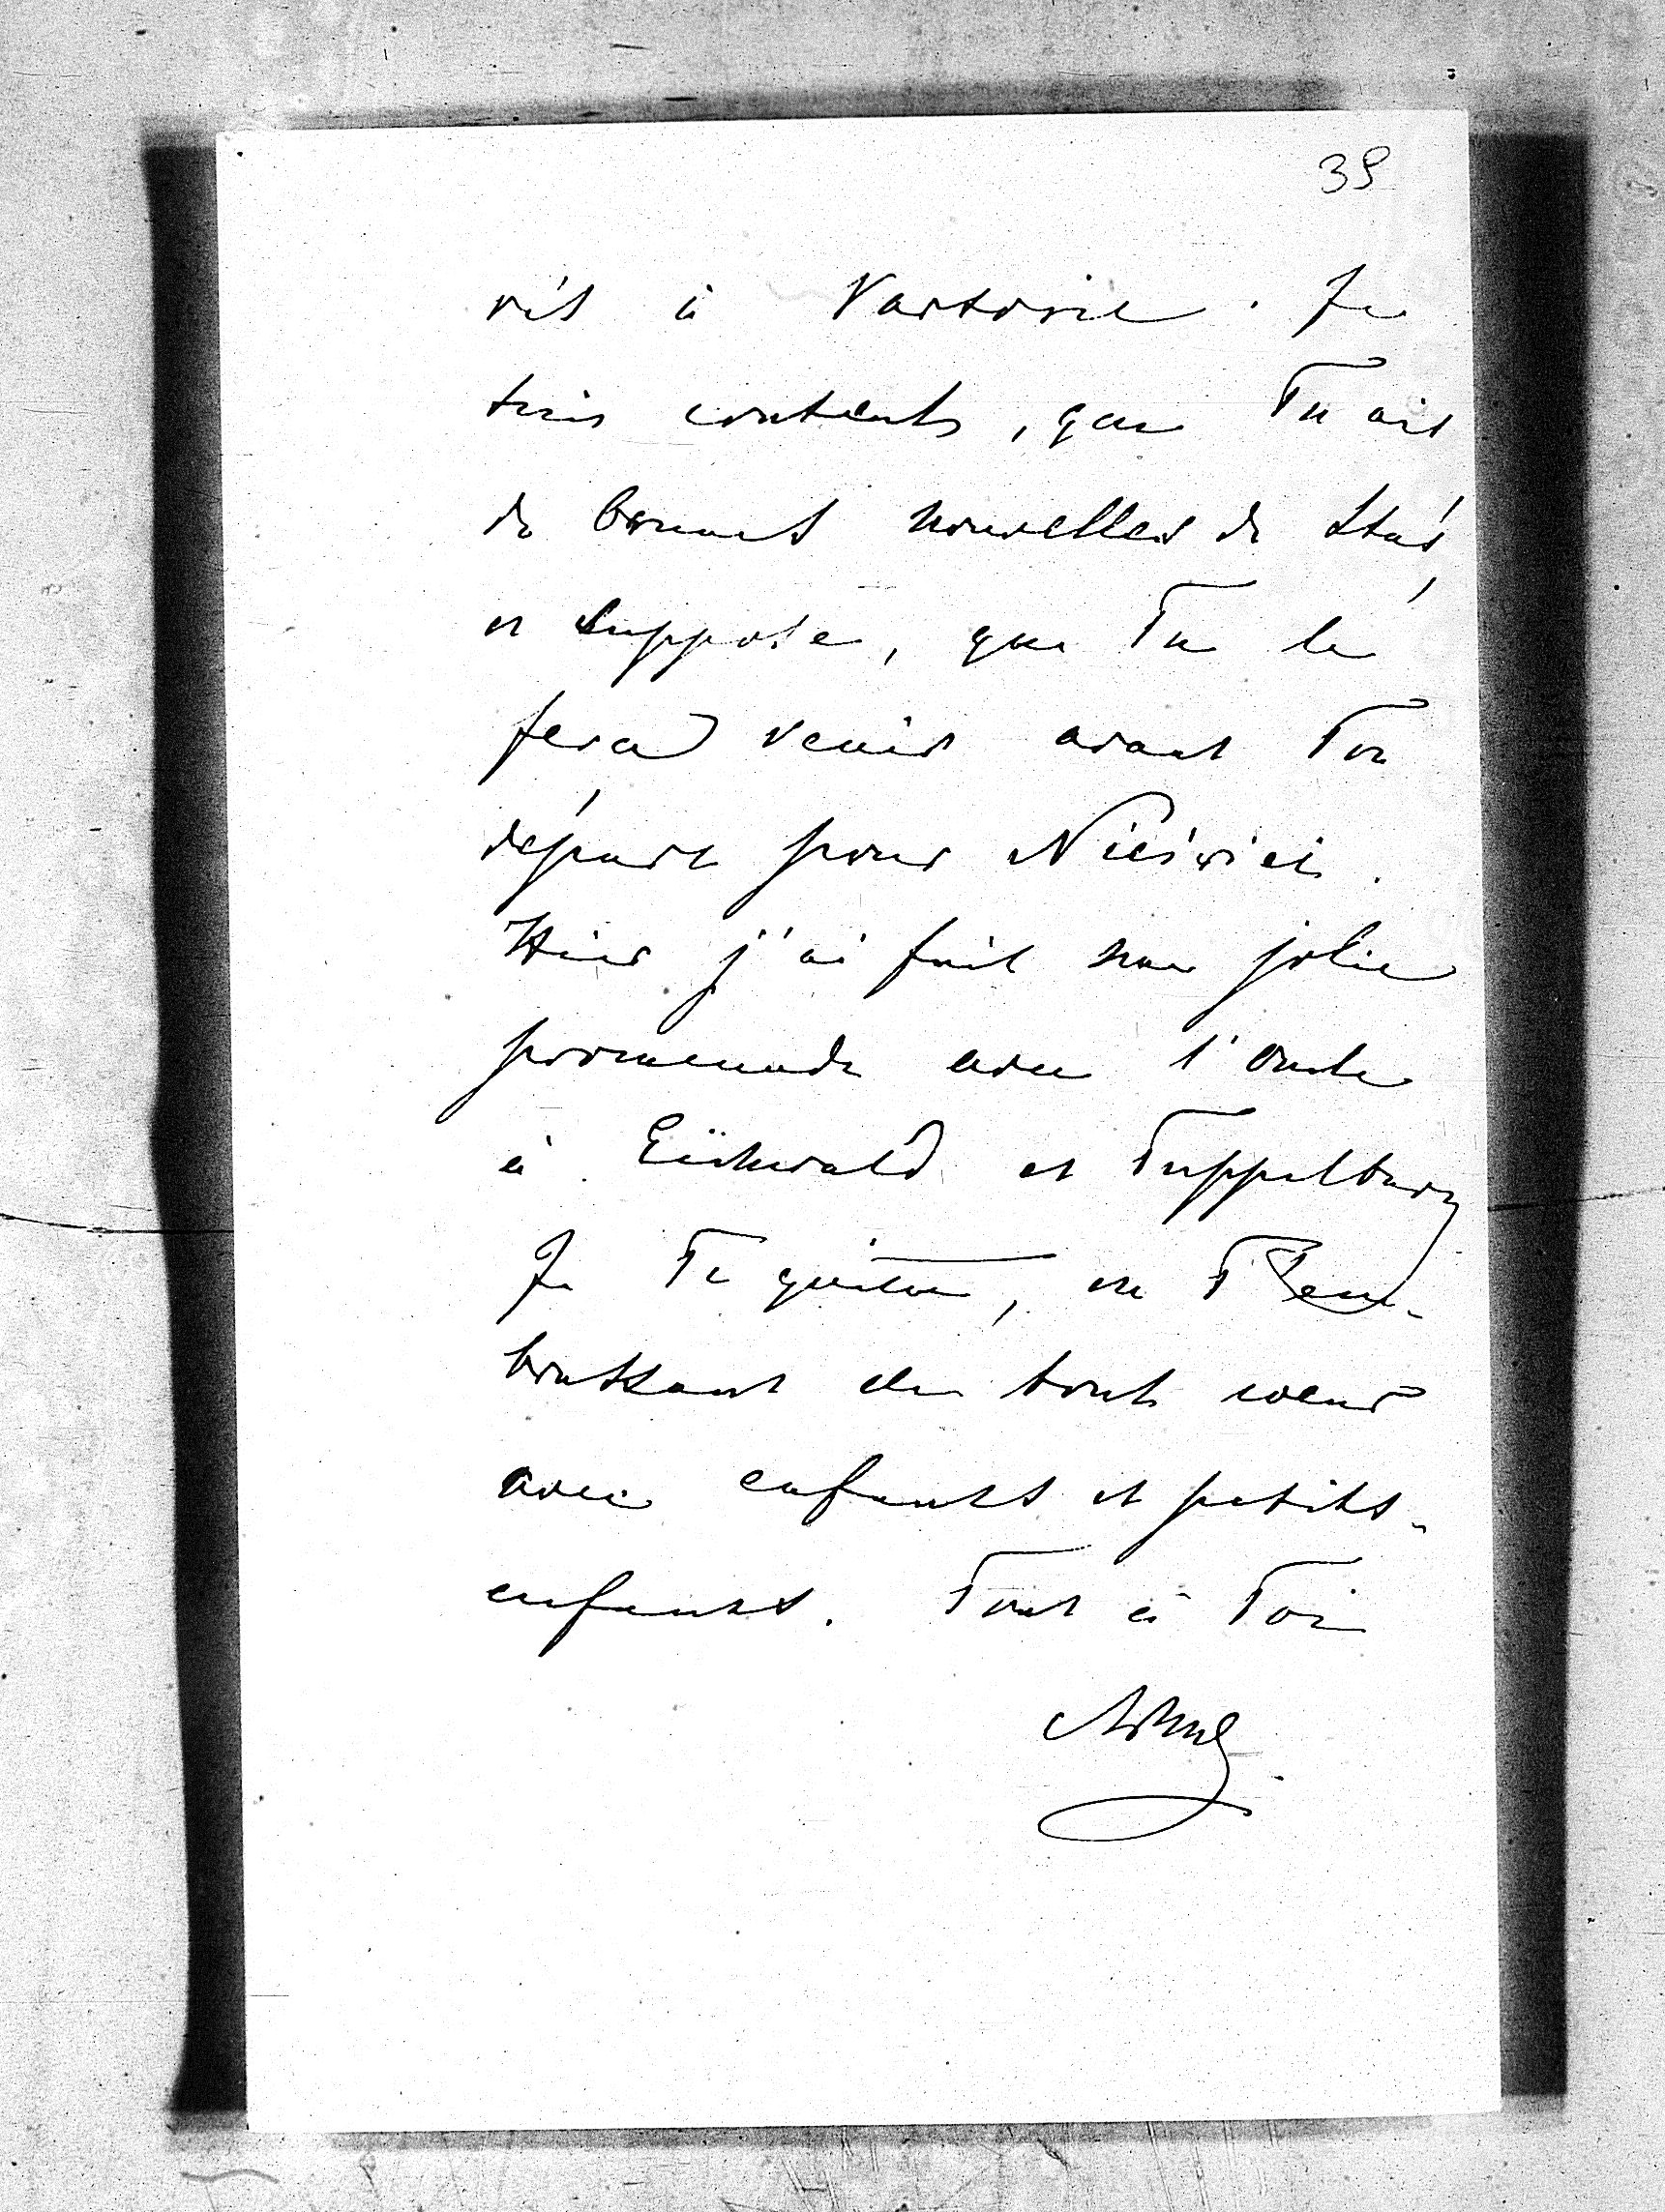 39
rés à Varsovie. Je
suis contents, que Tu ais
de bonnes nouvelles de Staś,
et suppose, que Tu le
feras venir avant Ton
départ pour Nieśwież.
Hier j'ai fait une jolie
promenade avec l'oncle
à Eichwald et Tuppelburg
Je Te quitte, en T'em-
brassant de tout coeur
avec enfants et petits-
enfants. Tout à Toi